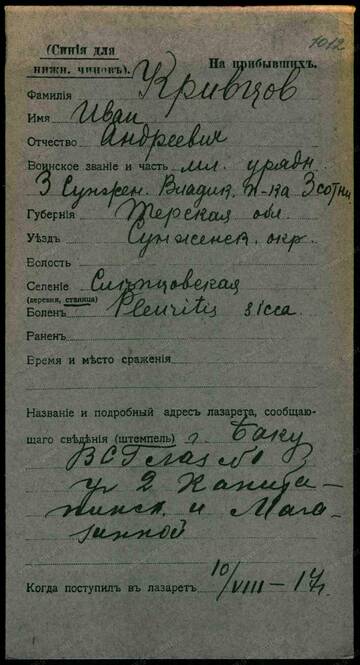 1012
(Синія для
нижн. чиновъ).
На прибывшихъ.
Фамилія Кривцов
Имя Иван
Отчество Андреевич
Воинское званіе и часть мл. урядн
3 Сунжен. Владик. п-ка 3 сотни
Губернія Терская обл.
Уѣздъ Сунженск. окр.
Волость
Селеніе Слѣпцовская
(деревня, станица)
Боленъ Pleuritis sicca
Раненъ
Время и мѣсто сраженія
Названіе и подробный адресъ лазарета, сообщаю-
щаго свѣдѣнія (штемпель) г. Баку
ВСГ лаз №1
уг 2 Каниця-
пинск. и Мага-
зинной
Когда поступилъ въ лазаретъ 10/VIII – 17г.